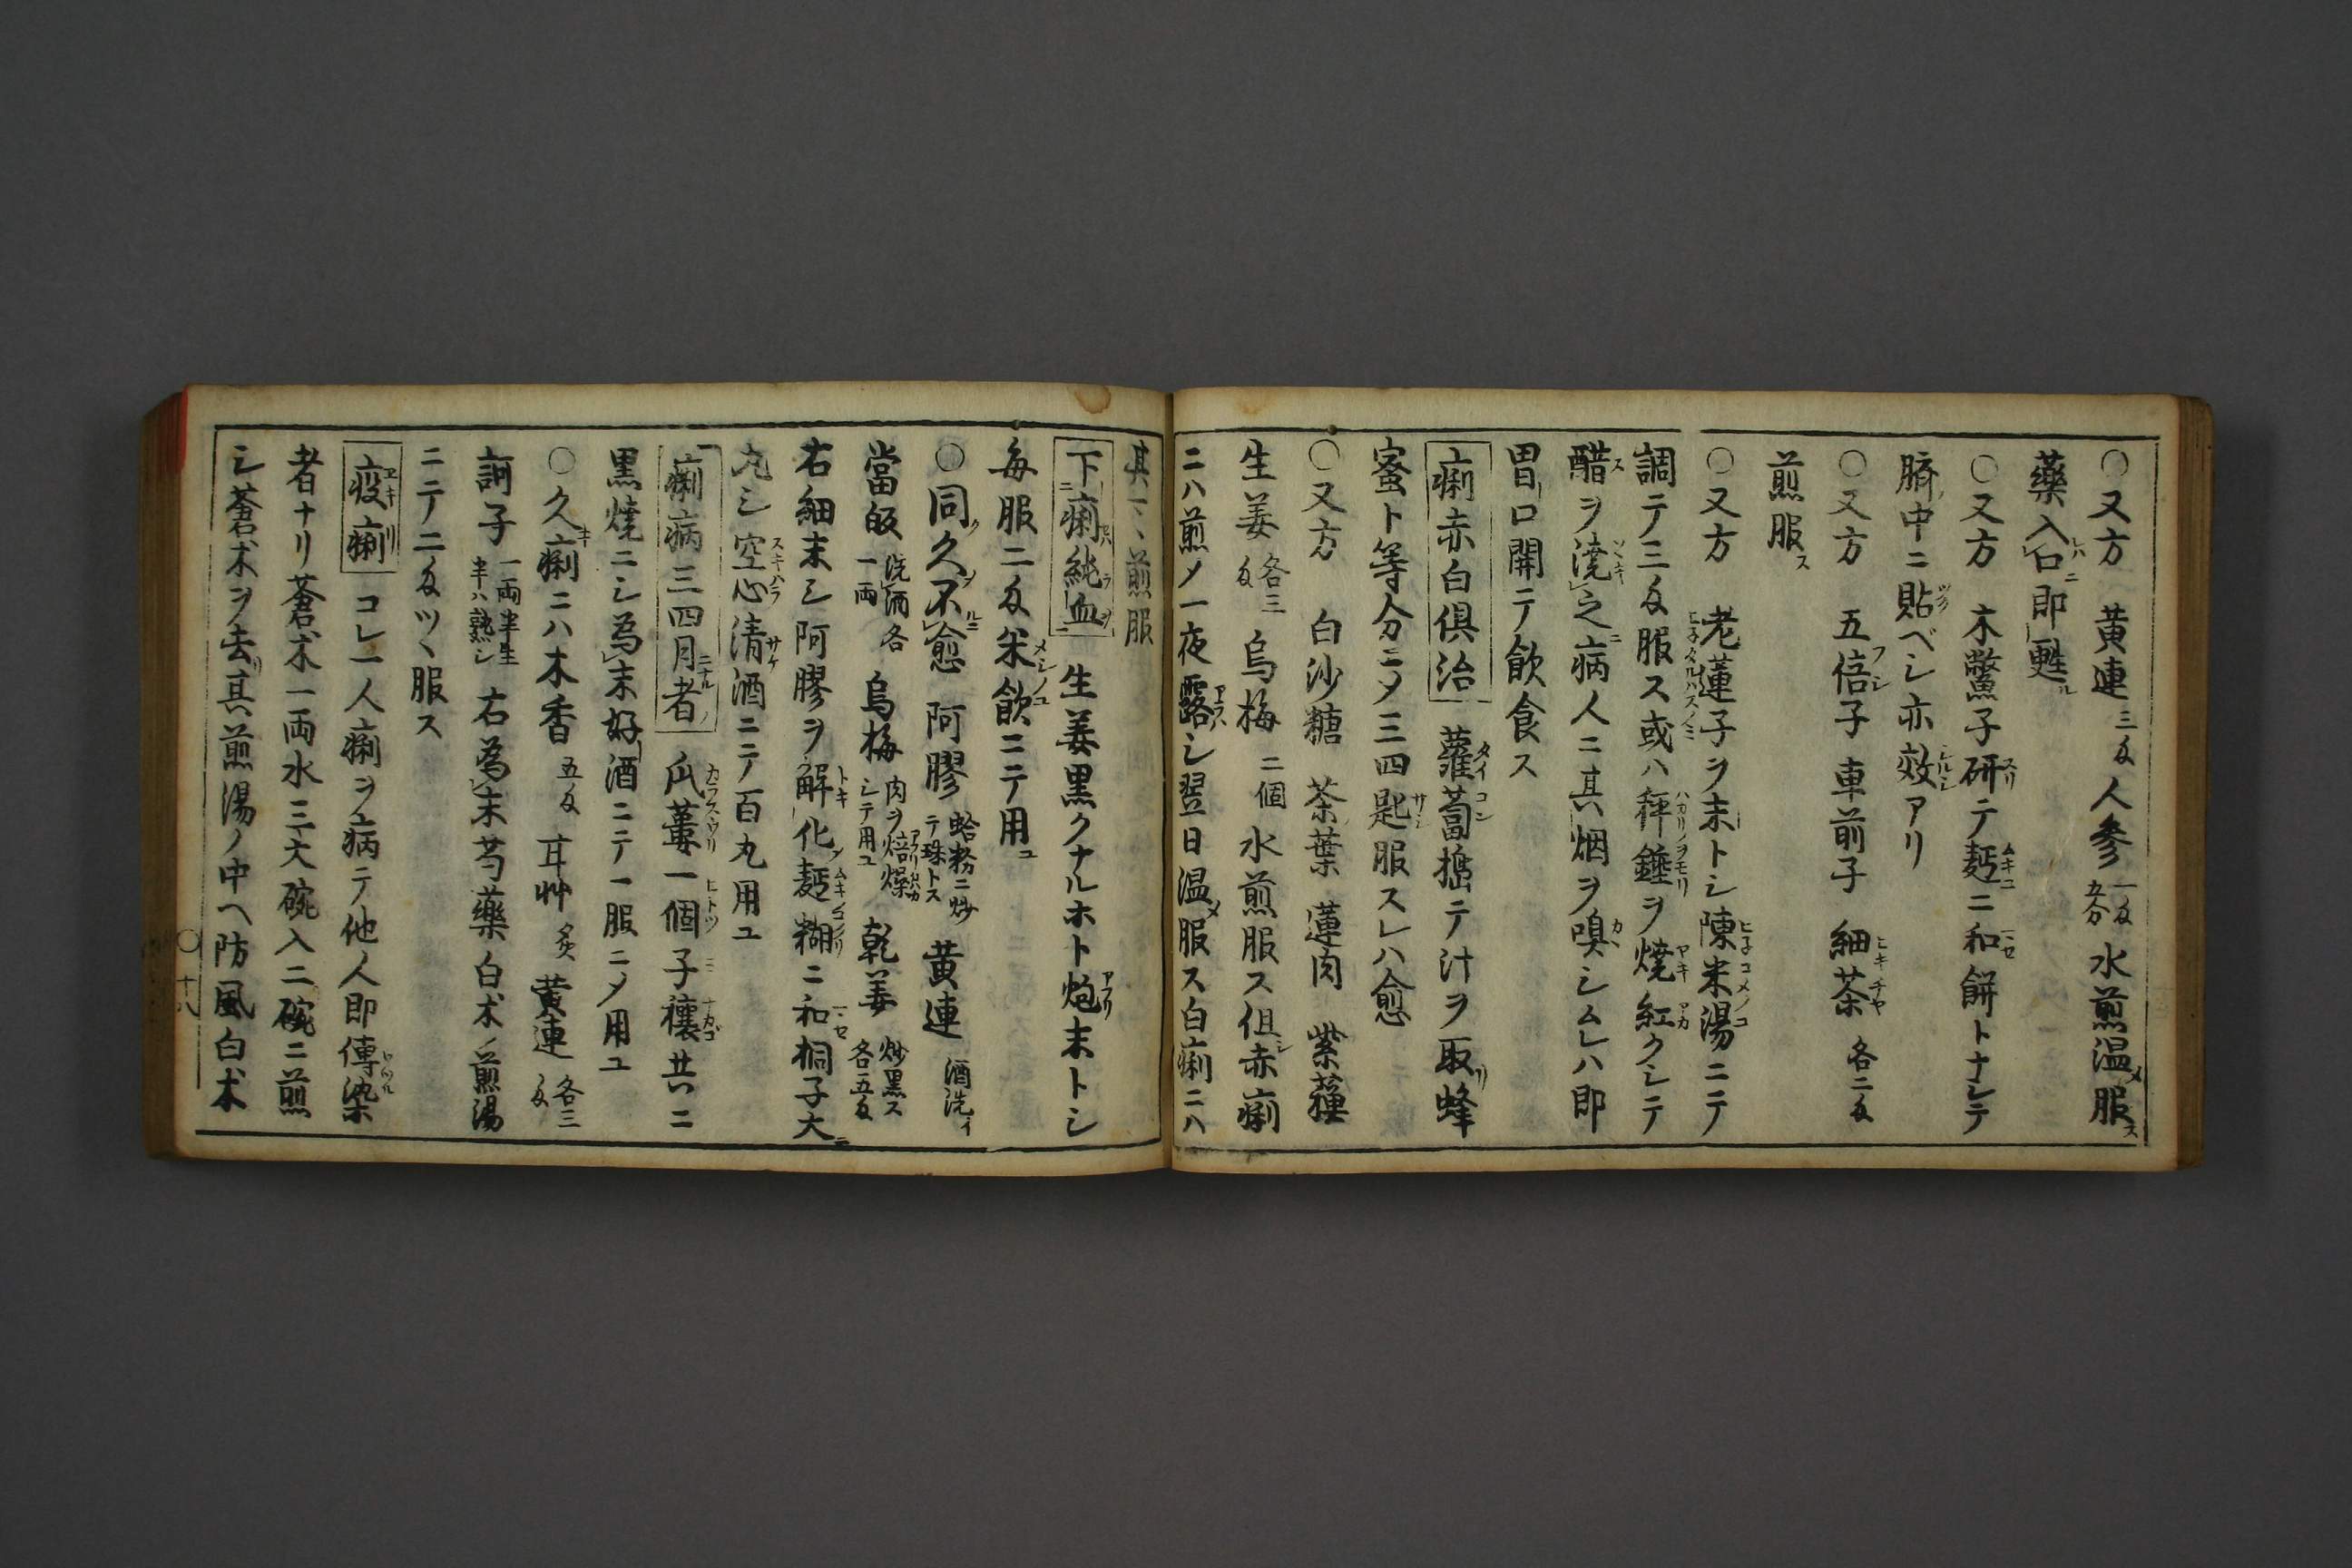 ○又方　黄連三匁人參一匁五分水煎温服ス
藥入口即甦ル
○又方　木鱉子研テ麪ニ和餅トナシテ
臍中ニ貼ベシ亦效アリ
○又方　五倍子　車前子　細茶　各二匁
煎服ス
○又方　老蓮子ヲ末トシ陳米湯ニテ
調テ三匁服ス或ハ秤錘ヲ焼紅クシテ
醋ヲ澆之病人ニ其烟ヲ嗅シムレハ即
胃口開テ飲食ス
痢赤白倶治　蘿蔔搗テ汁ヲ取蜂
蜜ト等分ニメ三四匙服スレハ愈
○又方　白沙糖　茶葉　蓮肉　紫蘓
生姜各三匁　烏梅二個　水煎服ス但赤痢
ニハ煎ノ一夜露シ翌日温服ス白痢ニハ
其マヽ煎服
下痢純血　生姜黒クナルホト炮末トシ
毎服二匁米飲ニテ用ユ
○同久不愈　阿膠蛤粉ニ炒テ珠トス　黄連酒洗イ
當皈洗酒各一両　烏梅肉ヲ焙燥シテ用ユ　乾姜炒黒ス各五匁
右細末シ阿膠ヲ解化麪糊ニ和桐子大ニ
丸シ空心清酒ニテ百丸用ユ
痢病三四月者　瓜蔞一個子穰共ニ
黒焼ニシ為末好酒ニテ一服ニメ用ユ
○久痢ニハ木香五匁　耳艸炙　黄連各三匁
訶子一両半生半ハ熟シ　右為末芍藥白朮ノ煎湯
ニテ二匁ツヽ服ス
疫痢　コレ一人痢ヲ病テ他人即傳染
者ナリ蒼朮一両水三大碗入二碗ニ煎
シ蒼朮ヲ去其煎湯ノ中ヘ防風白朮
○十八